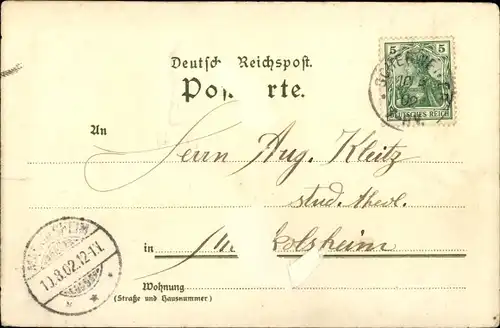 Deutsch Reichspost.
Pos rte.
5 5
DEUTSCHES REICH
An
Herrn Aug. Kleitz
stud. theol.
in olsheim
Wohnung
(Straße und Hausnummer)
10.8.02.12-1